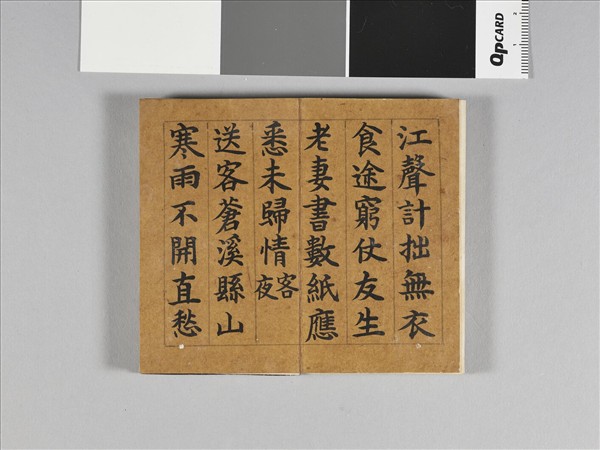 江聲計拙無衣
食途窮仗友生
老妻書數紙應
悉未歸情 客夜
送客蒼溪縣山
寒雨不開直愁
QPCARD